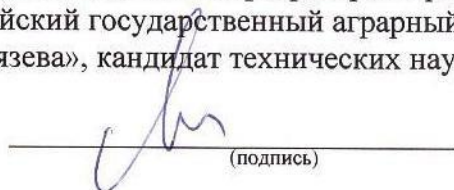 йский государственный аграрный
язева», кандидат технических нау
(подпись)